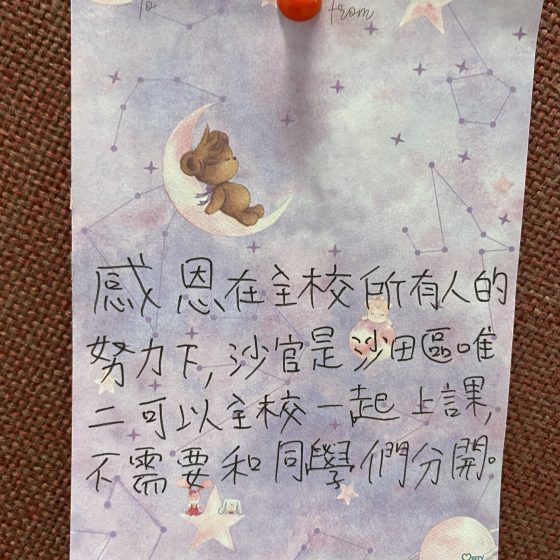 to from
感恩在全校所有人的
努力下,沙官是沙田區唯
二可以全校一起上課,
不需要和同學們分開。